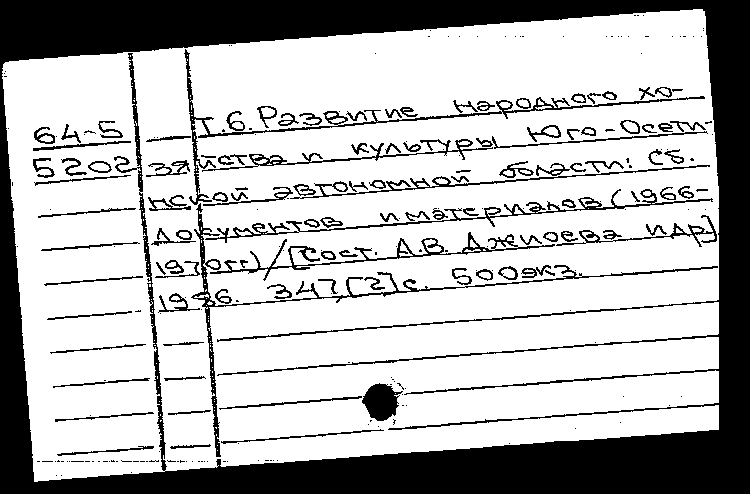 64-5 Т.6. Развитие народного хо-
5202 зяйства и культуры Юго-Осети-
нской автономной области: Сб.
документов и материалов (1966-
1970гг) / [Сост. А.В. Джиоева и др.]
1986. 347,[2]с. 500экз.